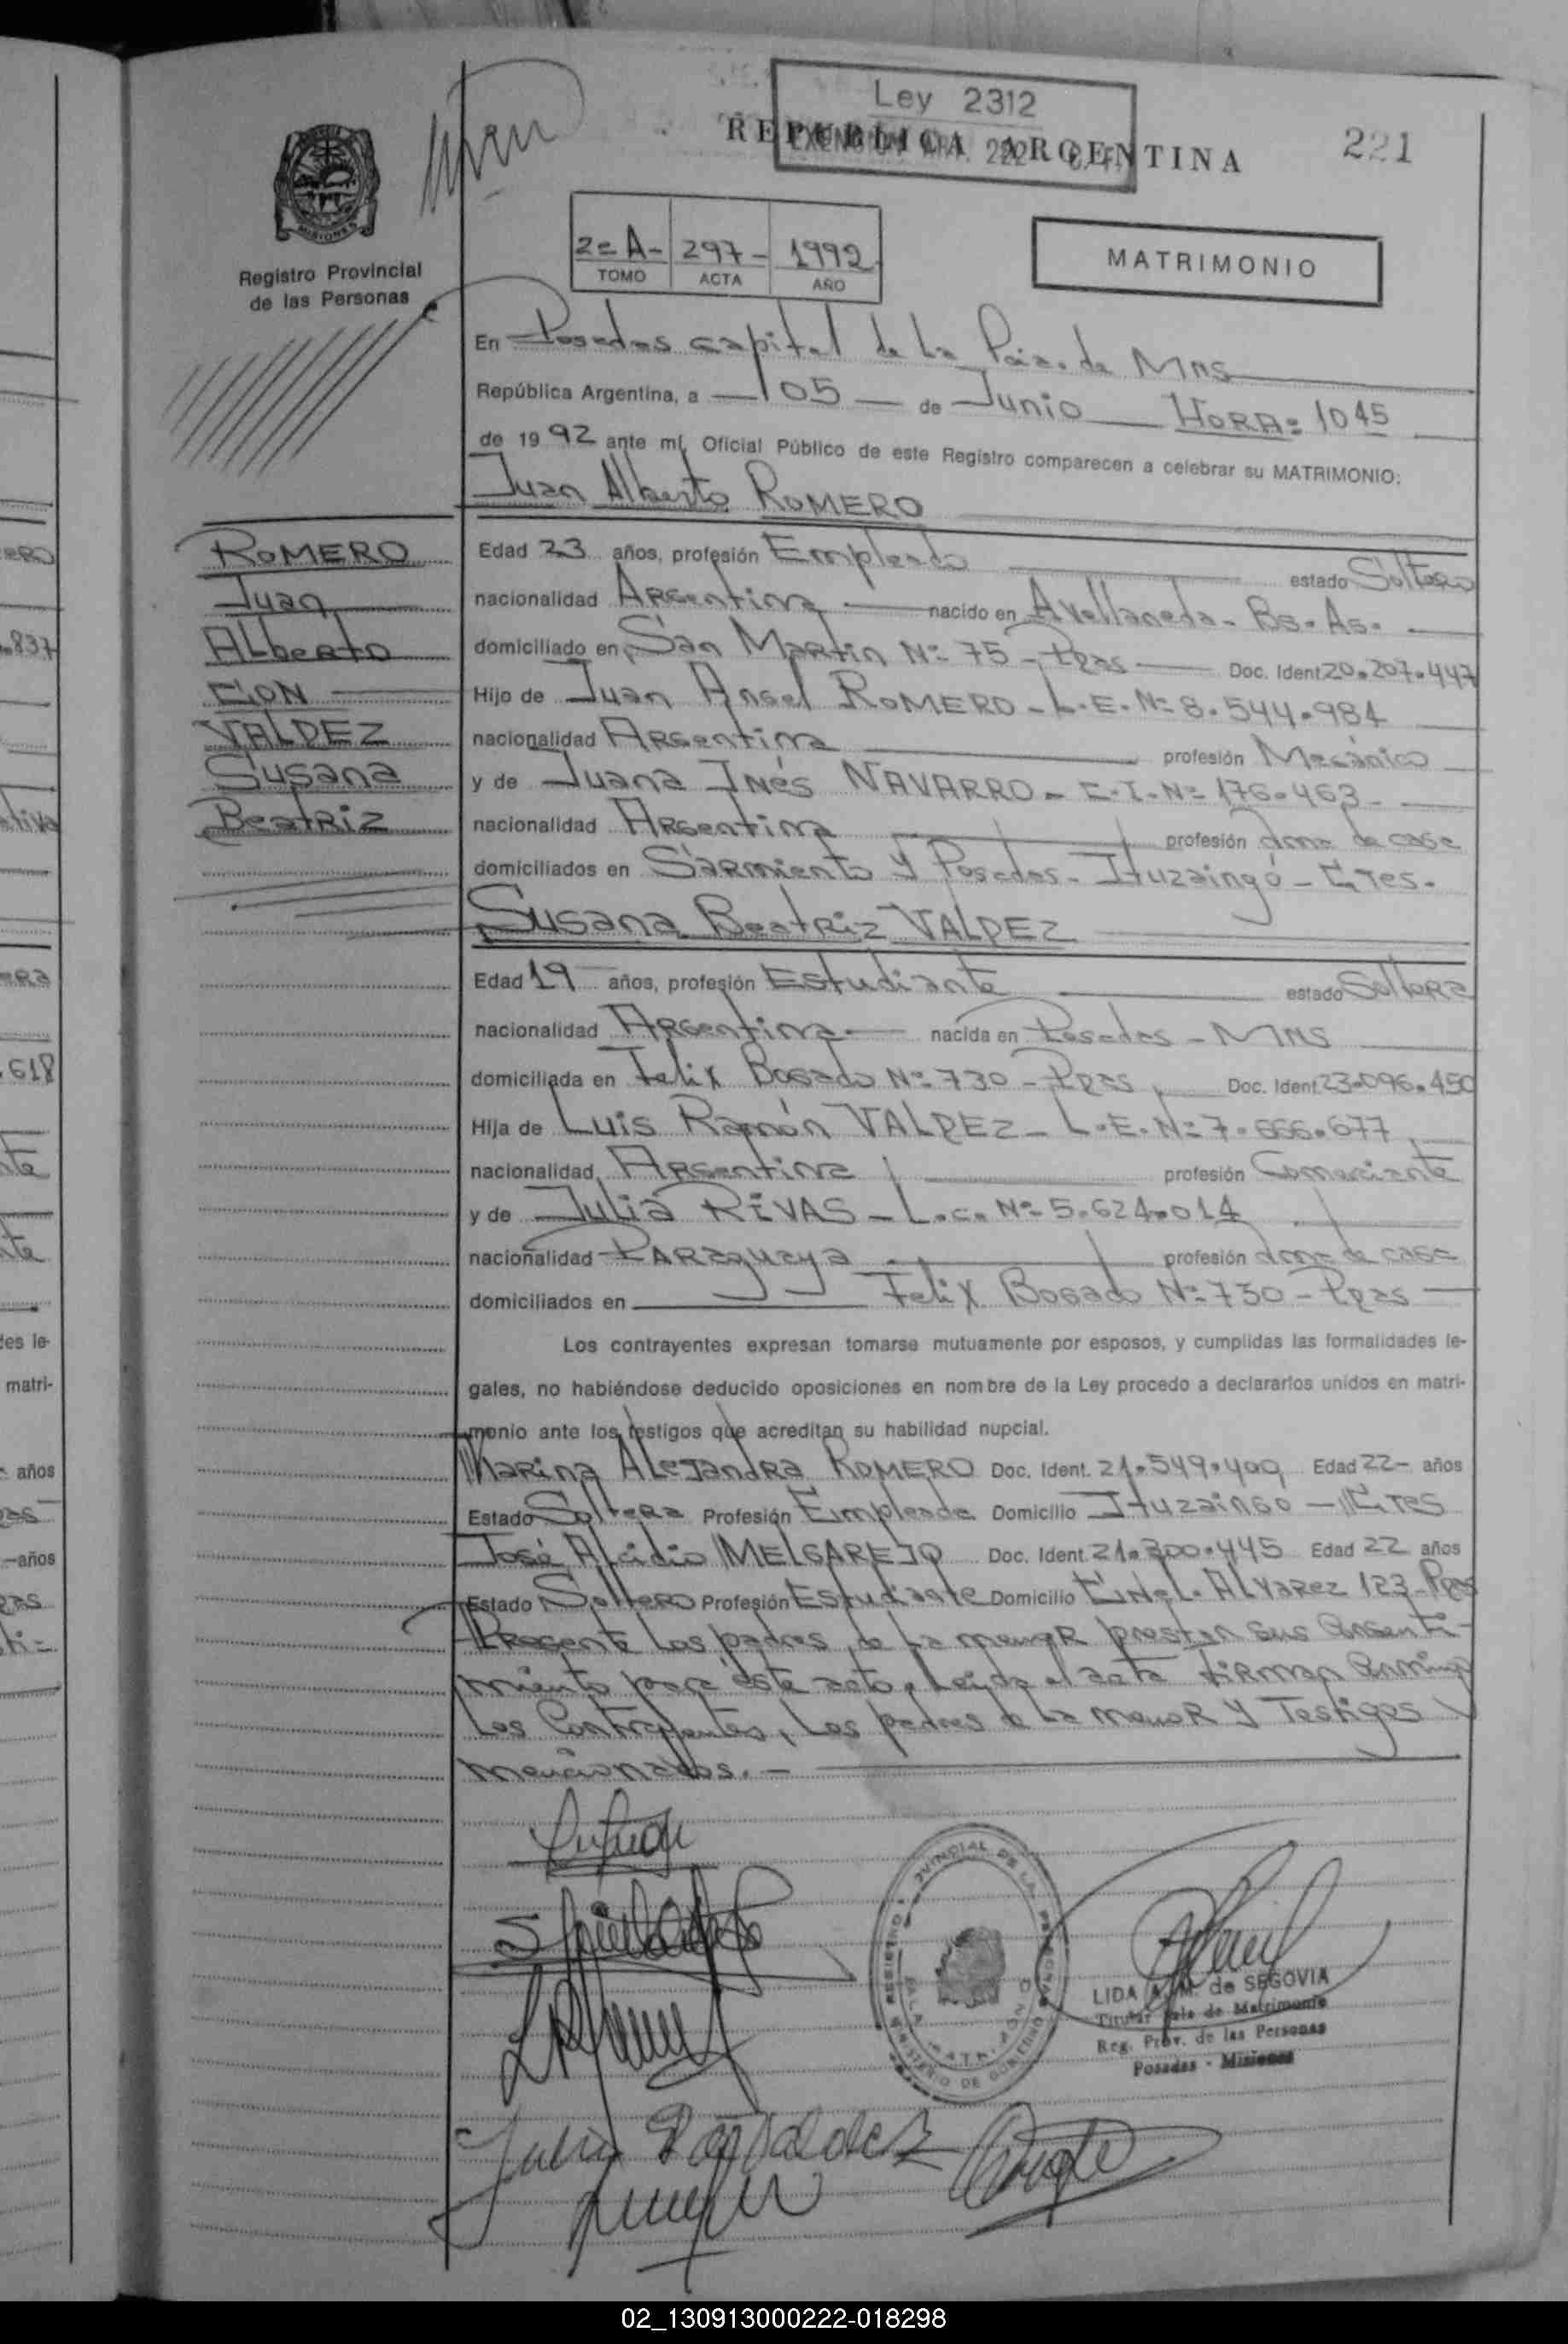 Ley 2312
REPUBLICA ARGENTINA
221
MISIONES
Registro Provincial
de las Personas
2= A- 297- 1992
TOMO ACTA AÑO
MATRIMONIO
En Posadas capital de la Pcia. de Mns
República Argentina, a 05 de Junio HORA= 1045
de 1992 ante mí, Oficial Público de este Registro comparecen a celebrar su MATRIMONIO:
Juan Alberto ROMERO
ROMERO
Juan
Alberto
CON
VALDEZ
Susana
Beatriz
Edad 23 años, profesión Empleado estado Soltero
nacionalidad Argentina nacido en Avellaneda - Bs. As.
domiciliado en San Martin Nº 75 - Pdas Doc. Ident 20.207.447
Hijo de Juan Angel ROMERO - L.E. Nº 8.544.984
nacionalidad Argentina profesión Mecánico
y de Juana Inés NAVARRO - C.I. Nº 176.463 -
nacionalidad Argentina profesión ama de casa
domiciliados en Sarmiento y Posadas - Ituzaingó - Ctes.
Susana Beatriz VALDEZ
Edad 19 años, profesión Estudiante estado Soltera
nacionalidad Argentina nacida en Posadas - Mns
domiciliada en Felix Bogado Nº 730 - Pdas Doc. Ident 23.096.450
Hija de Luis Ramón VALDEZ - L.E. Nº 7.666.677
nacionalidad Argentina profesión Comerciante
y de Julia RIVAS - L.C. Nº 5.624.014
nacionalidad Paraguaya profesión ama de casa
domiciliados en Felix Bogado Nº 730 - Pdas
Los contrayentes expresan tomarse mutuamente por esposos, y cumplidas las formalidades le-
gales, no habiéndose deducido oposiciones en nombre de la Ley procedo a declararlos unidos en matri-
monio ante los testigos que acreditan su habilidad nupcial.
Marina Alejandra ROMERO Doc. Ident. 21.549.400 Edad 22- años
Estado Soltera Profesión Empleada Domicilio Ituzaingo - Ctes
José Alcidio MELGAREJO Doc. Ident. 21.300.445 Edad 22 años
Estado Soltero Profesión Estudiante Domicilio Alvarez 123 - Pdas
Presente los padres de la menor prestan sus consenti-
miento para éste acto. Leida el acta firman conmigo
los Contrayentes, los padres de la menor y Testigos
mencionados. -
LIDA A. M. de SEGOVIA
Titular Sala de Matrimonio
Reg. Prov. de las Personas
Posadas - Misiones
02_130913000222-018298